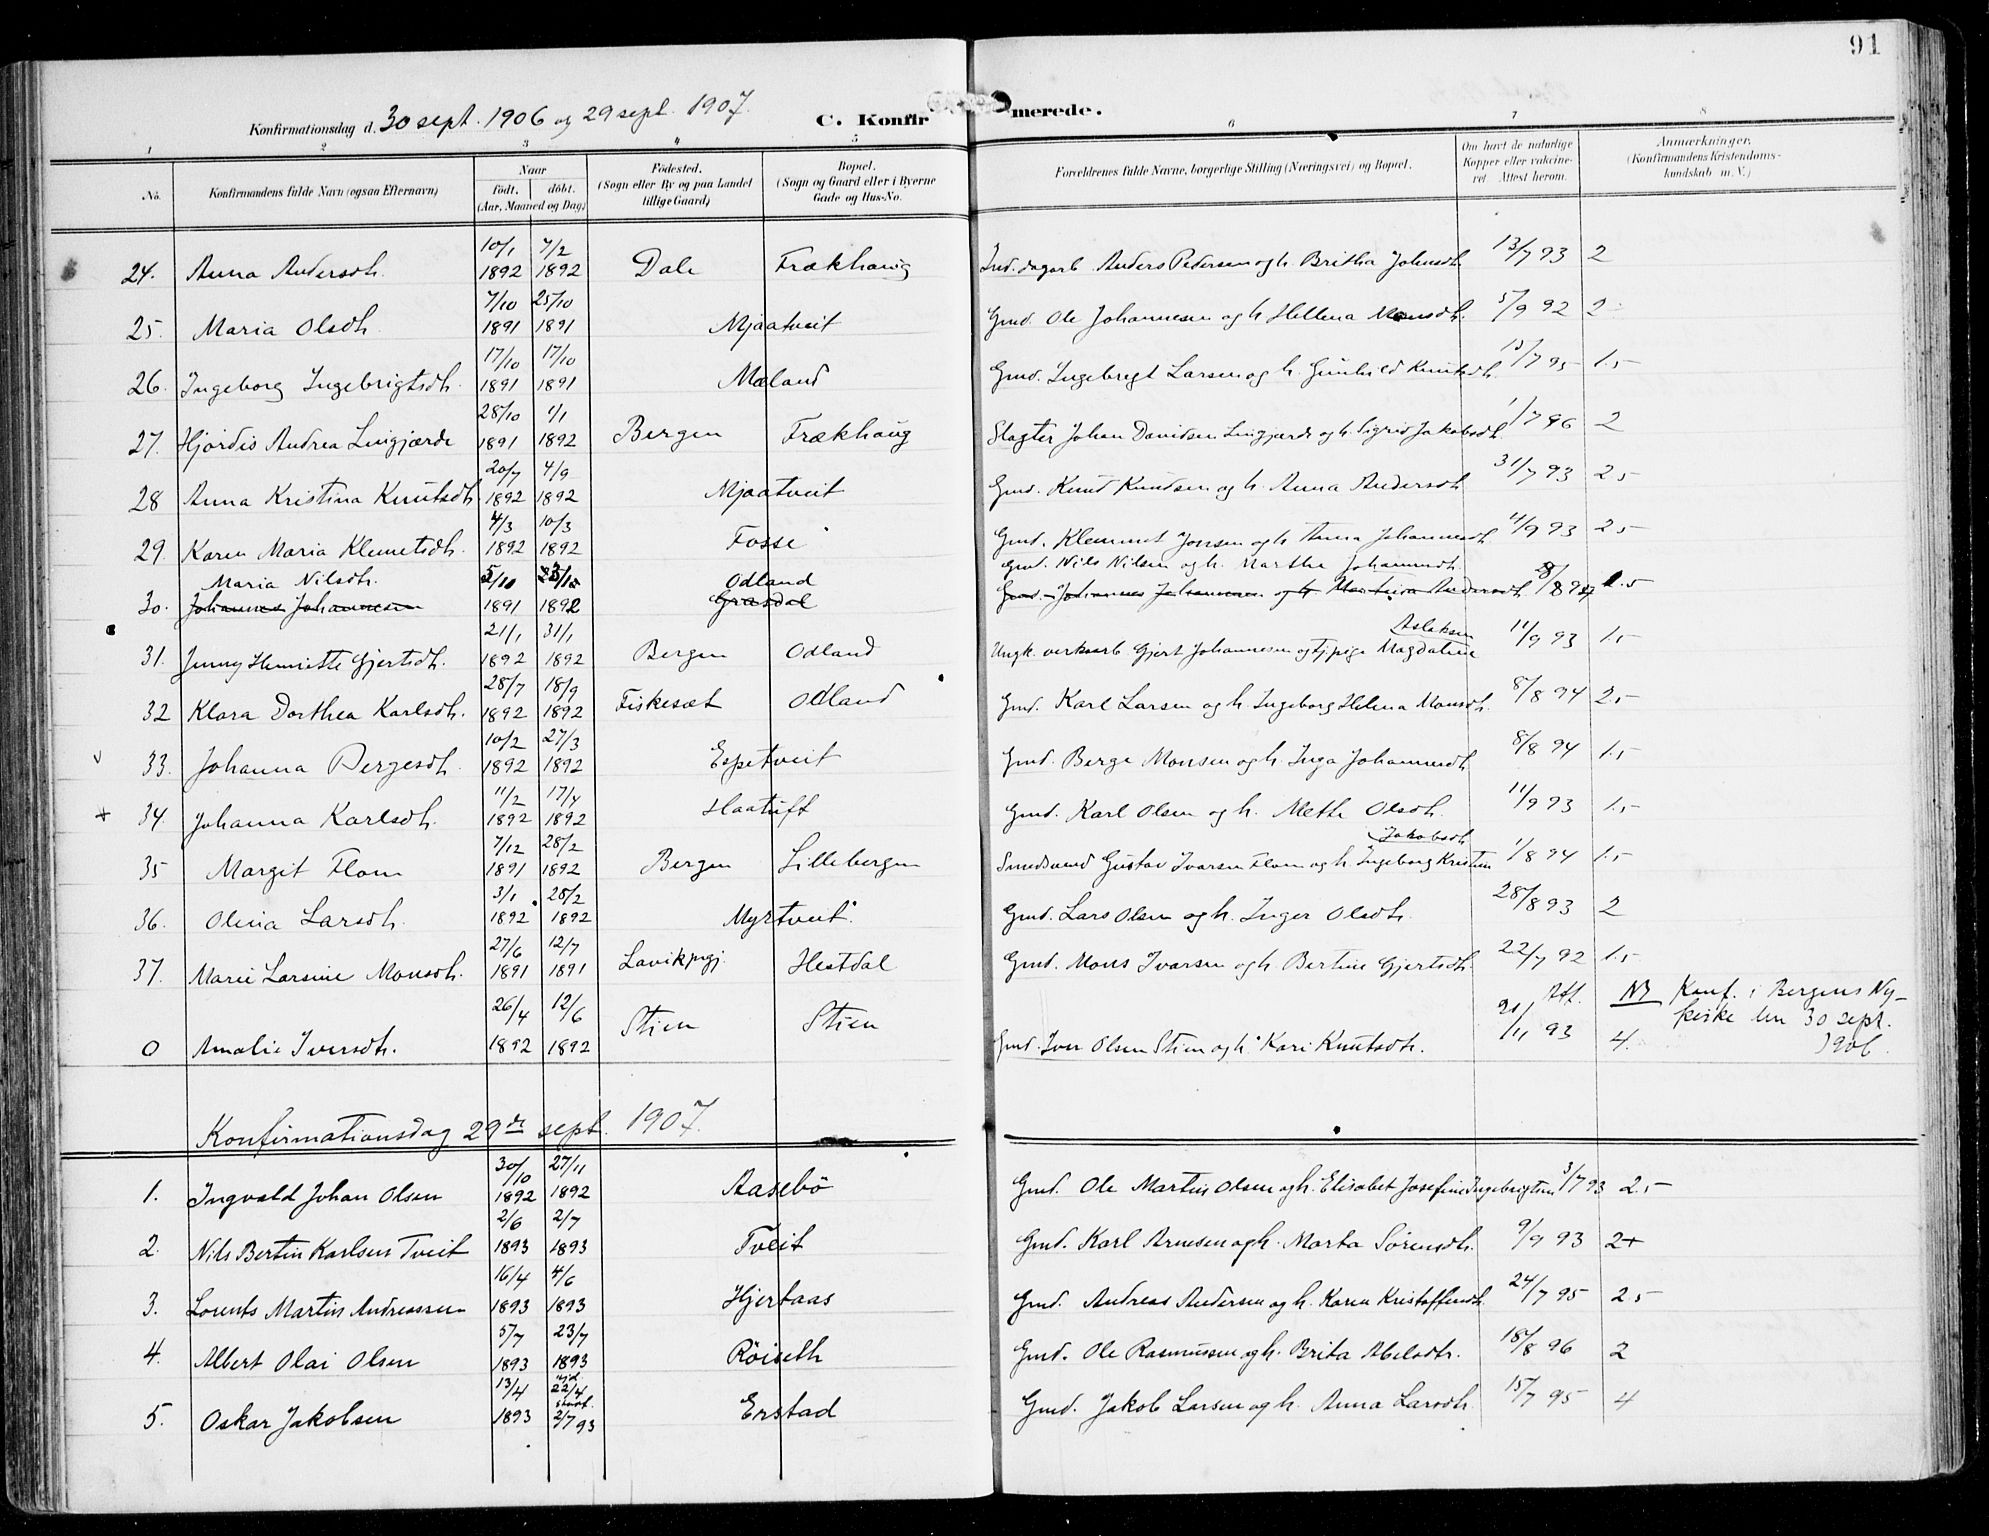 91
Konfirmationsdag d. 30 sept. 1906 og 29 sept. 1907.
C. Konfirmerede.
1 2 3 4 5 6 7 8
No. Konfirmandens fulde Navn (ogsaa Efternavn) Naar født, døbt. (Aar, Maaned og Dag) Fødested. (Sogn eller By og paa Landet tillige Gaard) Bopæl. (Sogn og Gaard eller i Byerne Gade og Hus-No. Forældrenes fulde Navne, borgerlige Stilling (Næringsvei) og Bopæl. Om havt de naturlige Kopper eller vakcineret Attest herom. Anmærkninger. (Konfirmandens Kristendomskundskab m. V.)
24. Anna Andersdh. 10/1 1892 7/2 1892 Dale Frækhaug Ind. dagarb. Anders Pedersen og h. Britha Johnsdh. 13/7 93 2
25. Maria Olsdh. 7/10 1891 25/10 1891 Mjaatveit Gmd. Ole Johannesen og h. Hellena Monsdh. 5/9 92 2
26. Ingeborg Ingebrigtsdh. 17/10 1891 17/10 1891 Mæland Gmd. Ingebrigt Larsen og h. Gunhild Knutsdh. 13/7 95 1.5
27. Hjördis Andrea Lingjærde 28/10 1891 1/1 1892 Bergen Frækhaug Slagter Johan Davidsen Lingjærde og h. Sigrid Jakobsdh. 1/7 96 2
28 Anna Kristina Knutsdh. 20/7 1892 4/9 1892 Mjaatveit Gmd. Knut Knudsen og h. Anna Andersdh 31/7 93 2.5
29. Karen Maria Klemetsdh. 4/3 1892 10/3 1892 Fosse Gmd. Klemmet Jonsen og h. Anna Johannesdh 11/9 93 2.5
Maria Nilsdh. Odland Gmd. Nils Nilsen og h. Martha Johannesdh.
30. Johannes Johannesen 5/10 1891 1892 Grasdal Gmd. Johannes Johannesen og h. Martina Andersdh. 1.5
31. Jenny Henriette Gjertsdh. 21/1 1892 31/1 1892 Bergen Odland Ungk. verksarb Gjert Johannesen og pige Magdalene Aslaksen 11/9 93 1.5
32 Klara Dorthea Karlsdh. 28/7 1892 18/9 1892 Fiskesæt Odland Gmd. Karl Larsen og h. Ingeborg Helena Monsdh. 8/8 94 2.5
v 33. Johanna Bergesdh. 10/2 1892 27/3 1892 Espetveit Gmd. Berge Monsen og h. Inga Johannesdh 8/8 94 1.5
+ 34. Johanna Karlsdh. 11/2 1892 17/4 1892 Haatuft Gmd. Karl Olsen og h. Mette Olsdh. 11/9 93 1.5
35 Margit Flom 7/12 1891 28/2 1892 Bergen Lillebergen Smedsvend Gustav Ivarsen Flom og h. Ingeborg Kristine Jakobsdh 1/8 94 1.5
36. Olina Larsdh. 3/1 1892 28/2 1892 Myrtveit Gmd. Lars Olsen og h. Inger Olsdh. 28/8 93 2
37. Marie Larsine Monsdh. 27/6 1891 12/7 1891 Lavikpgj. Hestdal Gmd. Mons Ivarsen og h. Bertine Gjertsdh. 22/7 92 1.5
0 Amalie Iversdh. 26/4 1892 12/6 1892 Stien Stien Gmd. Iver Olsen Stien og h. Kari Knutsdh. Att. 21/11 93 4. NB Konf. i Bergens Nykirke den 30 sept. 1906.
Konfirmationsdag 29de sept. 1907.
1. Ingvald Johan Olsen 30/10 1892 27/11 1892 Aasebö Gmd. Ole Martin Olsen og h. Elisabet Josefine Ingebrigtsen 3/7 93 2.5
2. Nils Bertin Karlsen Tveit 2/6 1893 2/7 1893 Tveit Gmd. Karl Arnesen og h. Marta Sörensdh. 9/9 93 2+
3. Lorents Martin Andreassen 16/4 1893 4/6 1893 Hjertaas Gmd. Andreas Andersen og h. Karen Kristoffersdh. 24/7 95 2.5
4. Albert Olai Olsen 5/7 1893 23/7 1893 Röiseth Gmd. Ole Rasmussen og h. Brita Abelsdtr. 18/8 96 2
5. Oskar Jakobsen 13/4 1893 22/4 2/7 93 Erstad Gmd. Jakob Larsen og h. Anna Larsdh. 15/7 95 4